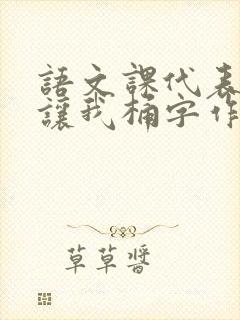 語文課代表
讓我桶字作
草草醬